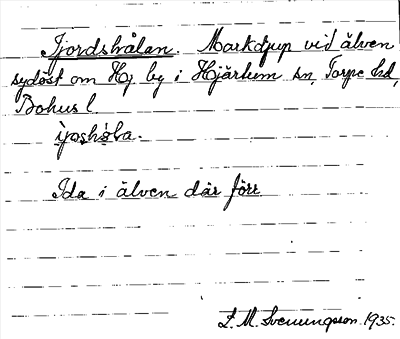 Fjordshålan. Markdjup vid älven
sydöst om Hj. by i Hjärtum sn, Torpe hd,
Bohusl.
Ida i älven där förr
L. M. Svenungsson 1935.